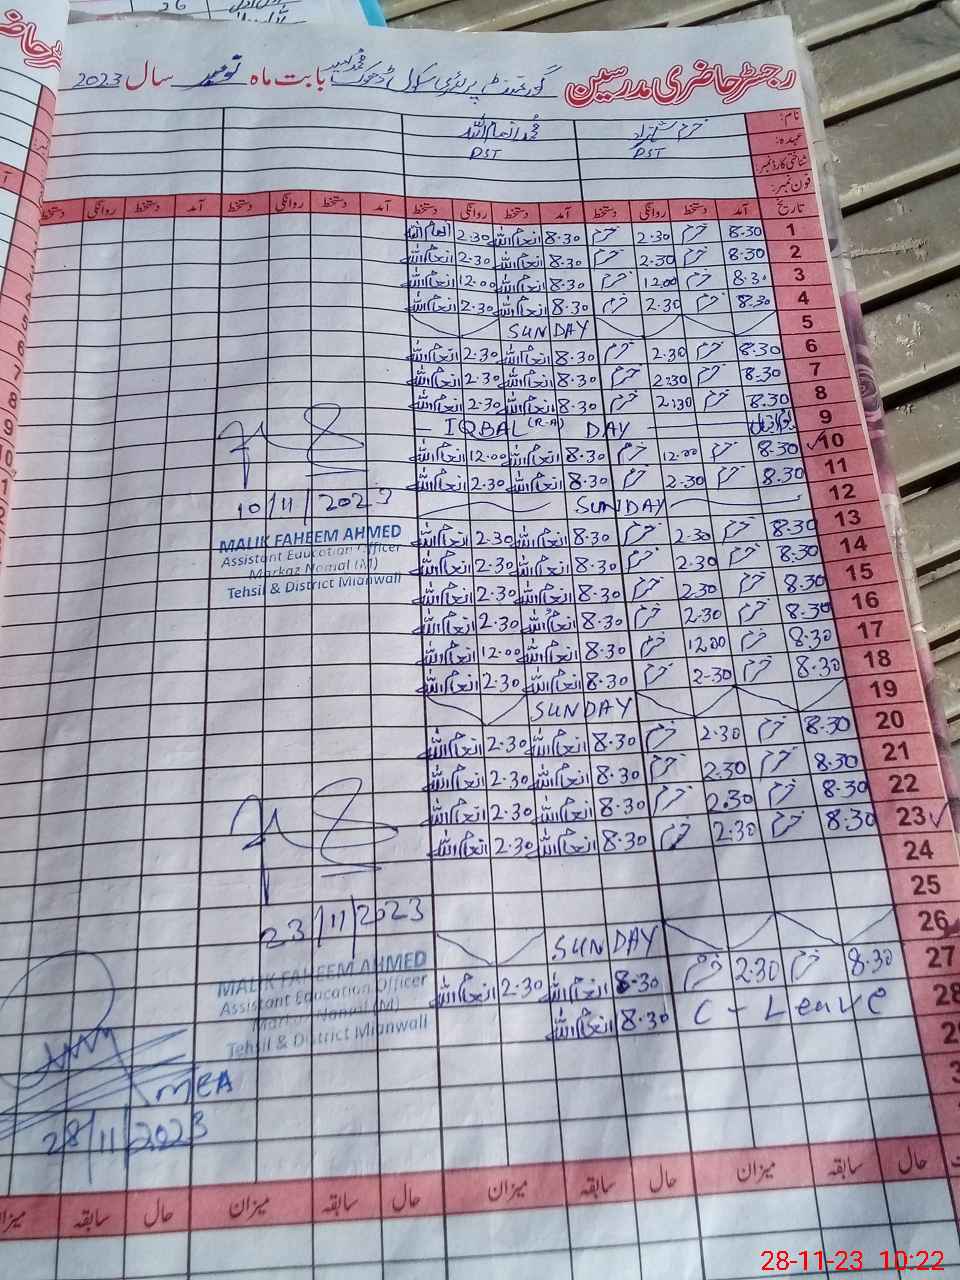 رجسٹر حاضری مدرسین گورنمنٹ پرائمری سکول بابت ماہ نومبر سال 2023
نام: خرم شہزاد محمد انعام اللہ
عہدہ: PST PST
شناختی کارڈ نمبر:
فون نمبر:
تاریخ آمد دستخط روانگی دستخط آمد دستخط روانگی دستخط آمد دستخط روانگی دستخط آمد دستخط روانگی دستخط
1 8.30 خرم 2.30 خرم 8.30 انعام اللہ 2.30 انعام اللہ
2 8.30 خرم 2.30 خرم 8.30 انعام اللہ 2.30 انعام اللہ
3 8.30 خرم 12.00 خرم 8.30 انعام اللہ 12.00 انعام اللہ
4 8.30 خرم 2.30 خرم 8.30 انعام اللہ 2.30 انعام اللہ
5 SUNDAY
6 8.30 خرم 2.30 خرم 8.30 انعام اللہ 2.30 انعام اللہ
7 8.30 خرم 2.30 خرم 8.30 انعام اللہ 2.30 انعام اللہ
8 8.30 خرم 2.30 خرم 8.30 انعام اللہ 2.30 انعام اللہ
9 IQBAL (R.A) DAY
10 8.30 خرم 12.00 خرم 8.30 انعام اللہ 12.00 انعام اللہ
11 8.30 خرم 2.30 خرم 8.30 انعام اللہ 2.30 انعام اللہ
12 SUNDAY
10/11/2023
MALIK FAHEEM AHMED
Assistant Education Officer
Markaz Namal (M)
Tehsil & District Mianwali
13 8.30 خرم 2.30 خرم 8.30 انعام اللہ 2.30 انعام اللہ
14 8.30 خرم 2.30 خرم 8.30 انعام اللہ 2.30 انعام اللہ
15 8.30 خرم 2.30 خرم 8.30 انعام اللہ 2.30 انعام اللہ
16 8.30 خرم 2.30 خرم 8.30 انعام اللہ 2.30 انعام اللہ
17 8.30 خرم 12.00 خرم 8.30 انعام اللہ 12.00 انعام اللہ
18 8.30 خرم 2.30 خرم 8.30 انعام اللہ 2.30 انعام اللہ
19 SUNDAY
20 8.30 خرم 2.30 خرم 8.30 انعام اللہ 2.30 انعام اللہ
21 8.30 خرم 2.30 خرم 8.30 انعام اللہ 2.30 انعام اللہ
22 8.30 خرم 2.30 خرم 8.30 انعام اللہ 2.30 انعام اللہ
23 8.30 خرم 2.30 خرم 8.30 انعام اللہ 2.30 انعام اللہ
24
25
23/11/2023
MALIK FAHEEM AHMED
Assistant Education Officer
Markaz Namal (M)
Tehsil & District Mianwali
26 SUNDAY
27 8.30 خرم 2.30 خرم 8.30 انعام اللہ 2.30 انعام اللہ
28 C - Leave 8.30 انعام اللہ
MEA
28/11/2023
حال سابقہ میزان حال سابقہ میزان حال سابقہ میزان حال سابقہ میزان
28-11-23 10:22